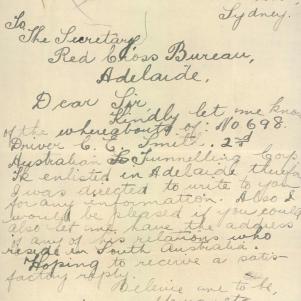 Sydney.
To
The Secretary,
Red Cross Bureau,
Adelaide.
Dear Sir,
Kindly let me know
of the whereabouts of: No 698.
Driver C. E. Smith. 2nd
Australian Tunnelling Corps
enlisted in Adelaide
I was directed to write to you
for any information. Also I
would be pleased if you could
also let me have the address
if any of his relations who
reside in South Australia.
Hoping to receive a satis-
factory reply.
Believe me to be,